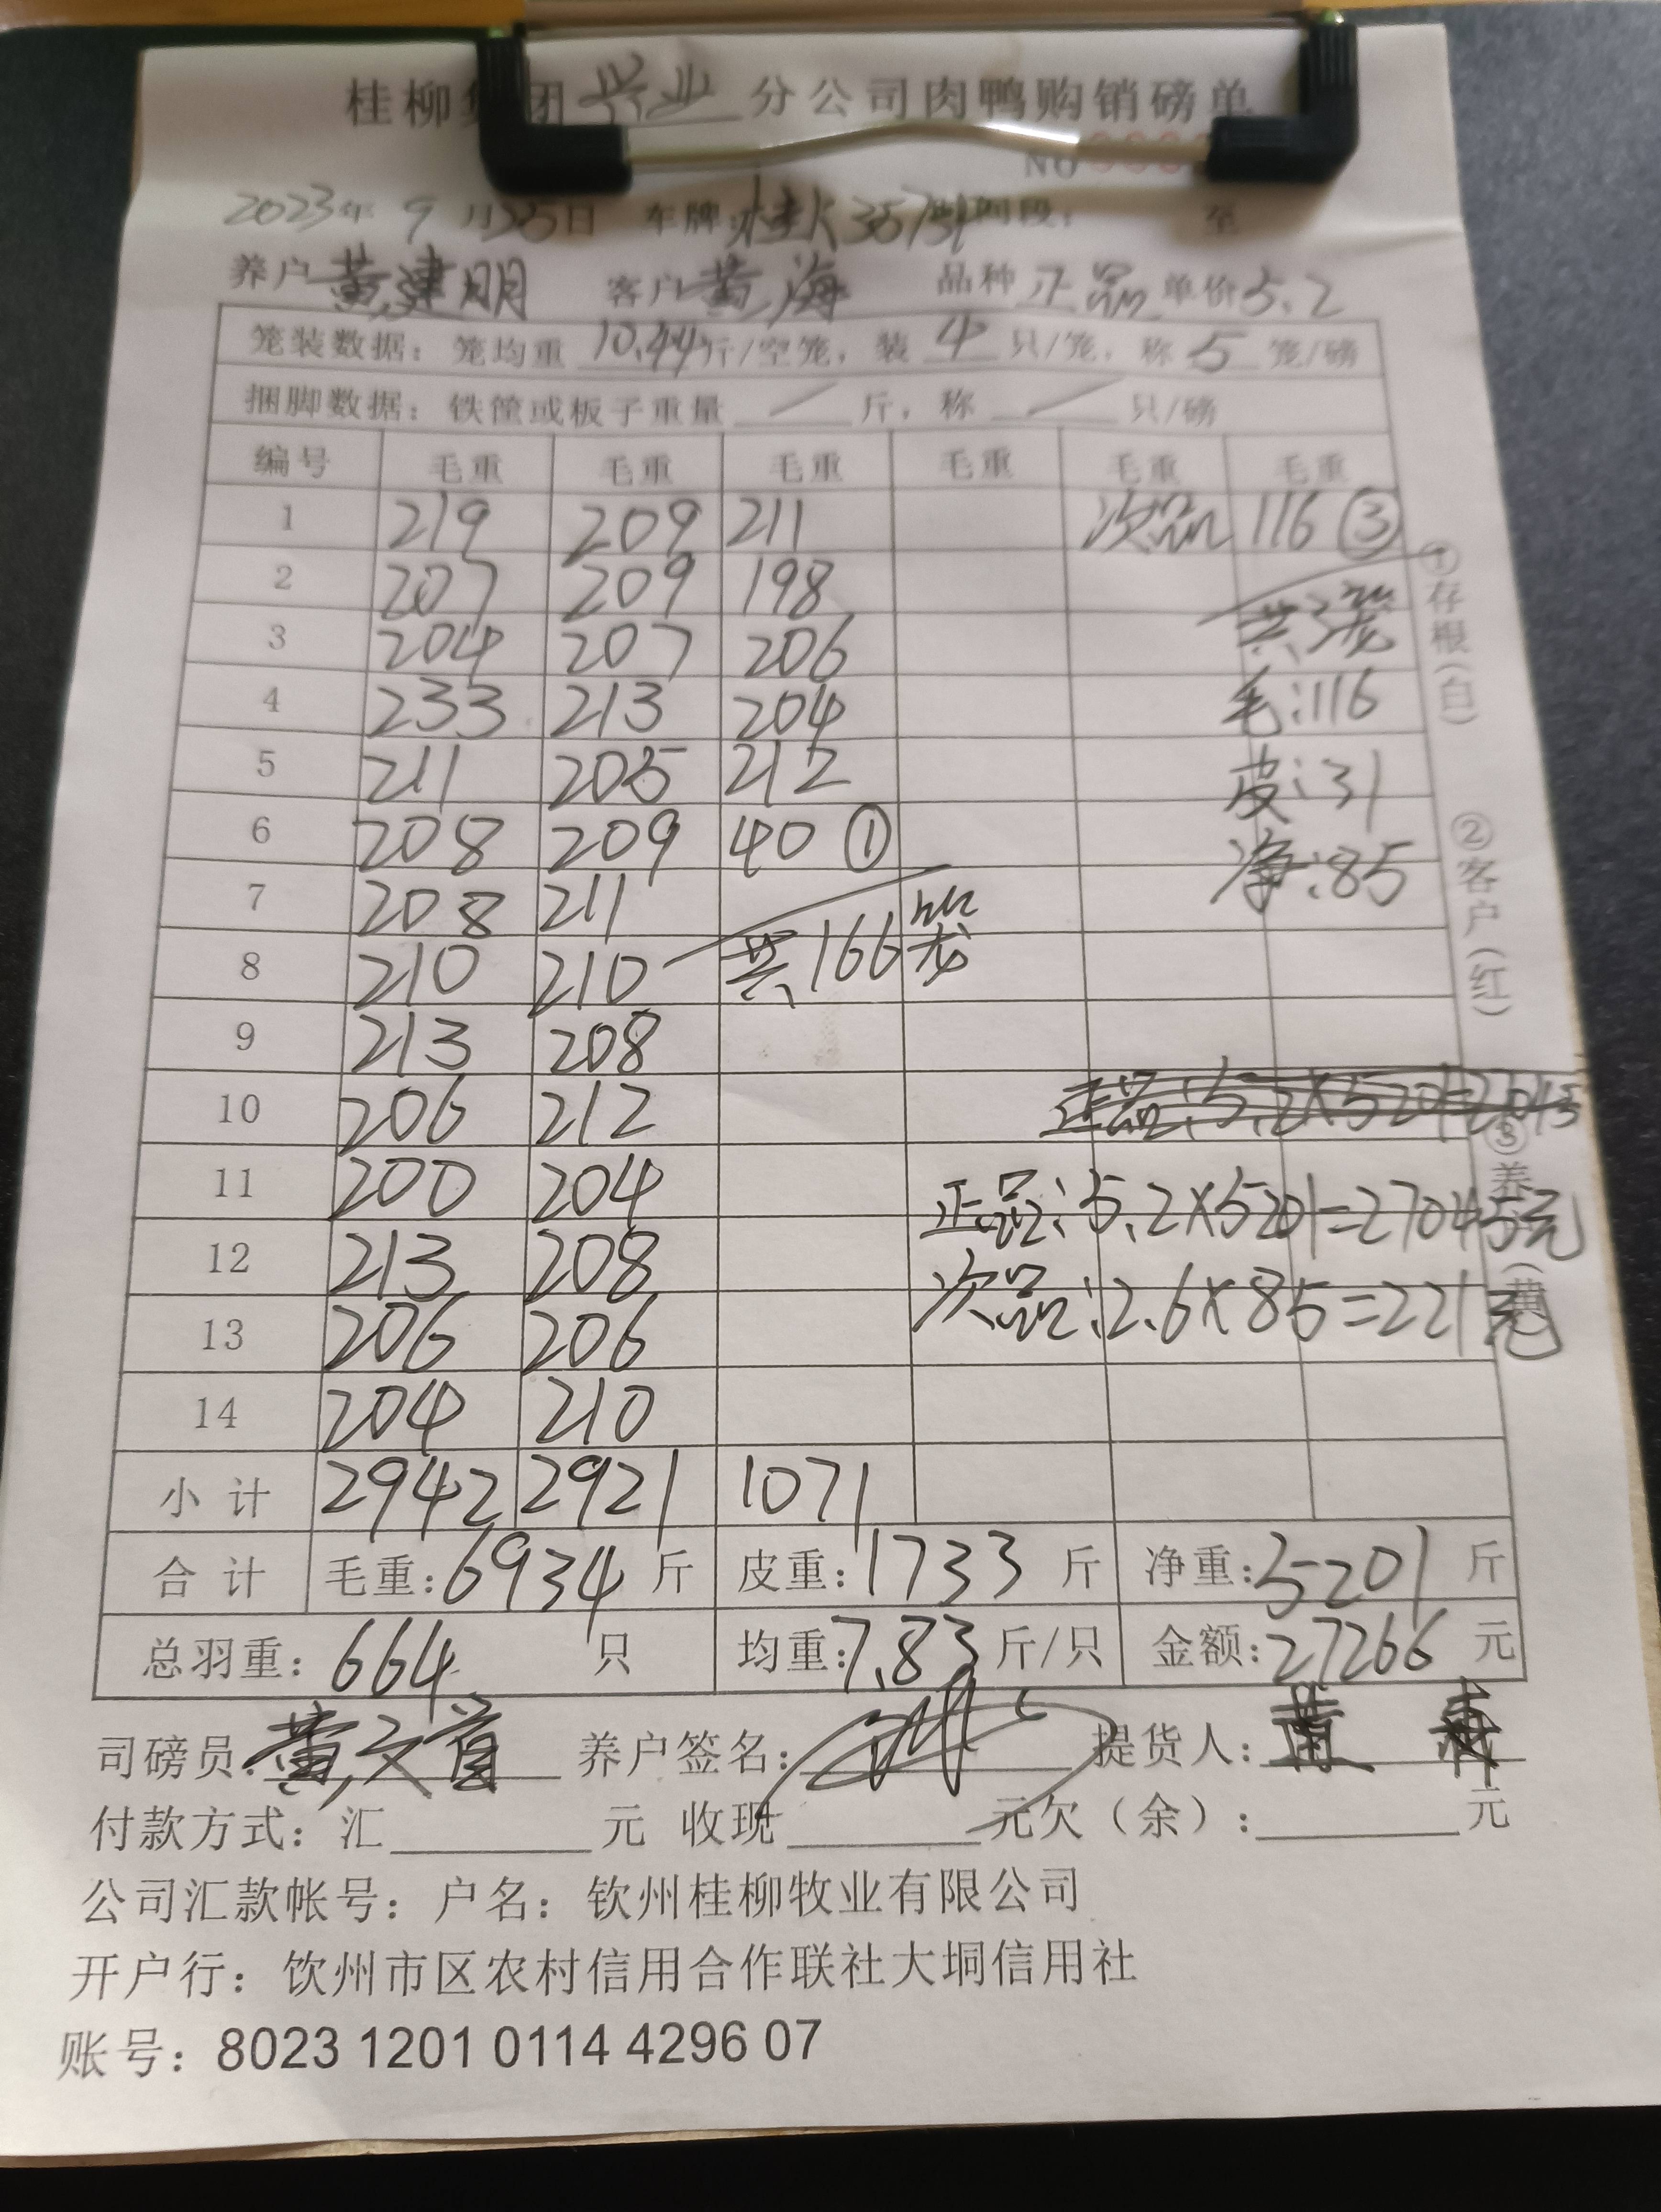 桂柳集团兴业分公司肉鸭购销磅单
NO
2023年9月25日 车牌: 时间段: 至
养户黄建明 客户黄海 品种正品 单价5.2
笼装数据：笼均重10.44斤/空笼，装4只/笼，称5笼/磅
捆脚数据：铁筐或板子重量 / 斤，称 / 只/磅
编号 毛重 毛重 毛重 毛重 毛重 毛重
1 219 209 211 次品 116 ③
2 207 209 198
3 204 207 206 共3笼
4 233 213 204 毛:116
5 211 205 212 皮:31
6 208 209 40 ① 净:85
7 208 211
8 210 210 共166笼
9 213 208
10 206 212
11 200 204 正品:5.2×5201=27045元
12 213 208 次品:2.6×85=221元
13 206 206
14 204 210
小计 2942 2921 1071
合计 毛重:6934斤 皮重:1733斤 净重:5201斤
总羽重：664只 均重:7.83斤/只 金额:27266元
司磅员:黄文首 养户签名: 提货人:黄海
付款方式：汇 元 收现 元欠（余）: 元
公司汇款帐号：户名：钦州桂柳牧业有限公司
开户行：饮州市区农村信用合作联社大垌信用社
账号：8023 1201 0114 4296 07
①存根(白)
②客户(红)
③养(黄)